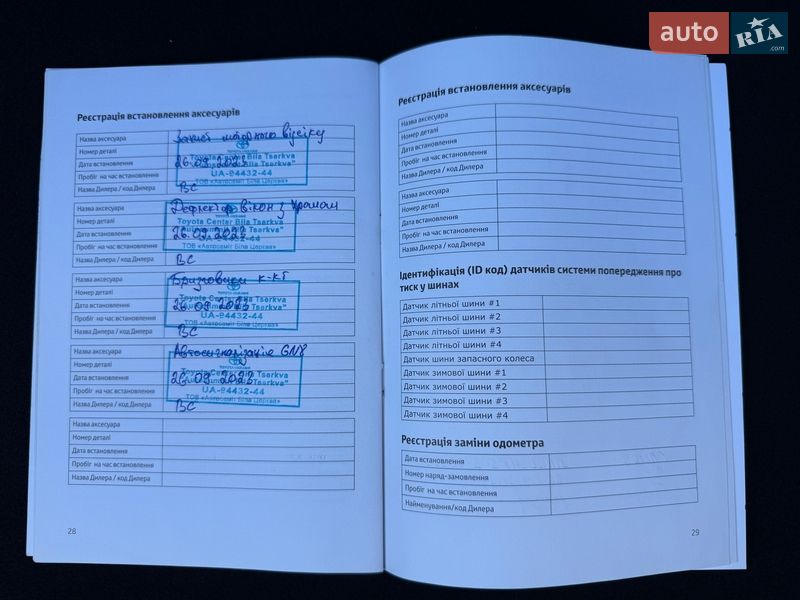 auto RIA .com
Реєстрація встановлення аксесуарів
Назва аксесуара Захист моторного відсіку
Номер деталі
Дата встановлення 26.09.2023
Пробіг на час встановлення
Назва Дилера / код Дилера ВС
Toyota Center Bila Tserkva
Bila Tserkva"
UA-94432-44
ТОВ «Автосаміт Біла Церква»
Назва аксесуара Дефлектор вікон з хромом
Номер деталі
Дата встановлення 26.09.2023
Пробіг на час встановлення
Назва Дилера / код Дилера ВС
Toyota Center Bila Tserkva
Bila Tserkva"
UA-94432-44
ТОВ «Автосаміт Біла Церква»
Назва аксесуара Бризговики к-кт
Номер деталі
Дата встановлення 26.09.2023
Пробіг на час встановлення
Назва Дилера / код Дилера ВС
Toyota Center Bila Tserkva
Bila Tserkva"
UA-94432-44
ТОВ «Автосаміт Біла Церква»
Назва аксесуара Автосигналізація
Номер деталі
Дата встановлення 26.09.2023
Пробіг на час встановлення
Назва Дилера / код Дилера ВС
Toyota Center Bila Tserkva
Bila Tserkva"
UA-94432-44
ТОВ «Автосаміт Біла Церква»
Назва аксесуара
Номер деталі
Дата встановлення
Пробіг на час встановлення
Назва Дилера / код Дилера
28
Реєстрація встановлення аксесуарів
Назва аксесуара
Номер деталі
Дата встановлення
Пробіг на час встановлення
Назва Дилера / код Дилера
Назва аксесуара
Номер деталі
Дата встановлення
Пробіг на час встановлення
Назва Дилера / код Дилера
Ідентифікація (ID код) датчиків системи попередження про
тиск у шинах
Датчик літньої шини #1
Датчик літньої шини #2
Датчик літньої шини #3
Датчик літньої шини #4
Датчик шини запасного колеса
Датчик зимової шини #1
Датчик зимової шини #2
Датчик зимової шини #3
Датчик зимової шини #4
Реєстрація заміни одометра
Дата встановлення
Номер наряд-замовлення
Пробіг на час встановлення
Найменування/код Дилера
29